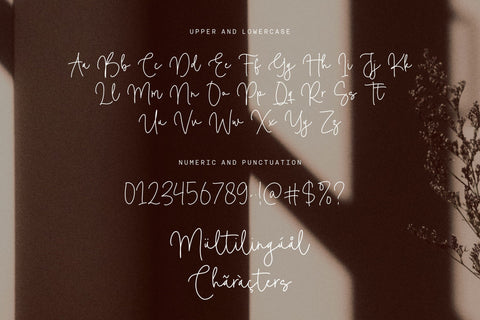 UPPER AND LOWERCASE
Aa Bb Cc Dd Ee Ff Gg Hh Ii Jj Kk
Ll Mm Nn Oo Pp Qq Rr Ss Tt
Uu Vv Ww Xx Yy Zz
NUMERIC AND PUNCTUATION
0123456789.,!@#$%??
Mültilingúål
Chãràçters